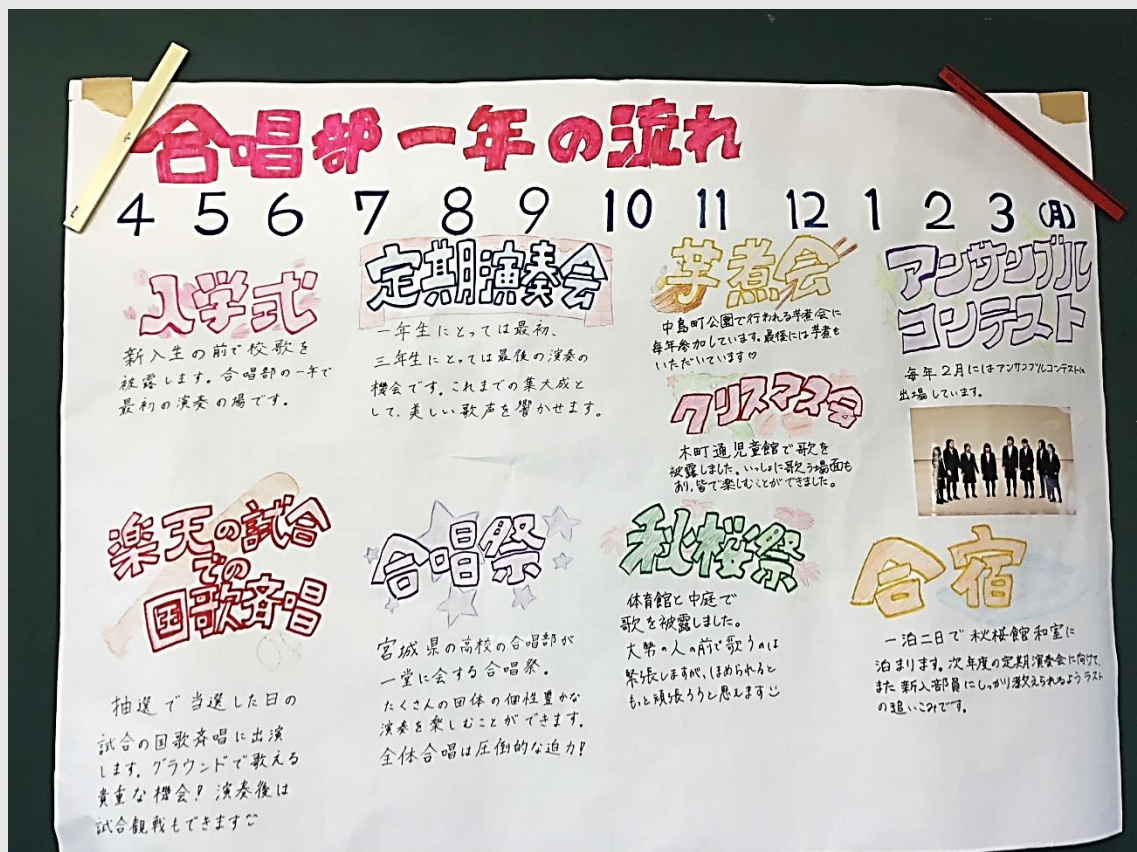 合唱部一年の流れ
4 5 6 7 8 9 10 11 12 1 2 3 (月)
入学式
新入生の前で校歌を
披露します。合唱部の一年で
最初の演奏の場です。
定期演奏会
一年生にとっては最初、
三年生にとっては最後の演奏の
機会です。これまでの集大成と
して、美しい歌声を響かせます。
芋煮会
中島町公園で行われる芋煮会に
毎年参加しています。最後には芋煮も
いただいています♡
クリスマス会
木町通児童館で歌を
披露しました。いっしょに歌う場面も
あり、皆で楽しむことができました。
アンサンブル
コンテスト
毎年2月にはアンサンブルコンテストに
出場しています。
楽天の試合
での
国歌斉唱
抽選で当選した日の
試合の国歌斉唱に出演
します。グラウンドで歌える
貴重な機会!演奏後は
試合観戦もできます
合唱祭
宮城県の高校の合唱部が
一堂に会する合唱祭。
たくさんの団体の個性豊かな
演奏を楽しむことができます。
全体合唱は圧倒的な迫力!
秋桜祭
体育館と中庭で
歌を披露しました。
大勢の人の前で歌うのは
緊張しますが、ほめられると
もっと頑張ろうと思えます
合宿
一泊二日で秋桜館和室に
泊まります。次年度の定期演奏会に向けて、
また新入部員にしっかり教えられるようラスト
の追いこみです。